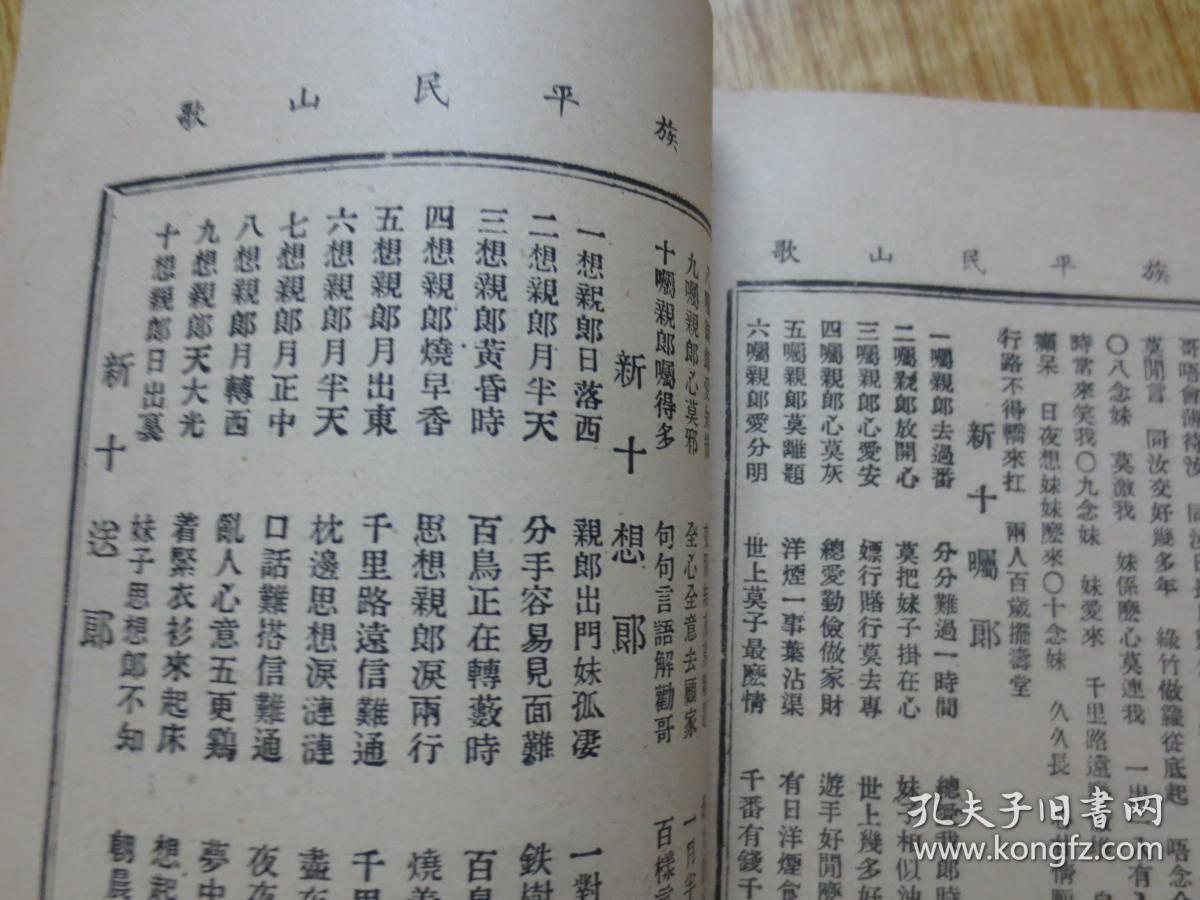 族平民山歌
哥唔會
莫閒言 同汝交好幾多年 綠竹做籮從底起 唔念
〇八念妹 莫激我 妹係麽心莫連我 一出一入有
時常來笑我〇九念妹 妹愛來 千里路遠
嚬呆 日夜想妹妹麽來〇十念妹 久久長
行路不得轎來扛 兩人百歲擺壽堂
新十囑郎
一囑親郎去過番 分分難過一時間 總愛我郎時
二囑親郎放開心 莫把妹子掛在心 妹子相似油
三囑親郎心愛安 嫖行賭行莫去專 世上幾多好
四囑親郎心莫灰 總愛勤儉做家財 遊手好閒麽
五囑親郎莫離題 洋煙一事葉沾渠 有日洋煙食
六囑親郎愛分明 世上莫子最麽情 千番有錢千
族平民山歌
九囑親郎心莫邪 全心全意去顧家 一月半
十囑親郎囑得多 句句言語解勸哥 百樣言
新十想郎
一想親郎日落西 親郎出門妹孤凄 一對
二想親郎月半天 分手容易見面難 鉄樹
三想親郎黃昏時 百鳥正在轉藪時 百鳥
四想親郎燒早香 思想親郎淚兩行 燒
五想親郎月出東 千里路遠信難通 千里
六想親郎月半天 枕邊思想淚漣漣 盡在
七想親郎月正中 口話難搭信難通 夜夜
八想親郎月轉西 亂人心意五更鷄 夢中
九想親郎天大光 着緊衣衫來起床 想起
十想親郎日出裏 妹子思想郎不知 朝晨
新十送郎
孔夫子旧书网
www.kongfz.com